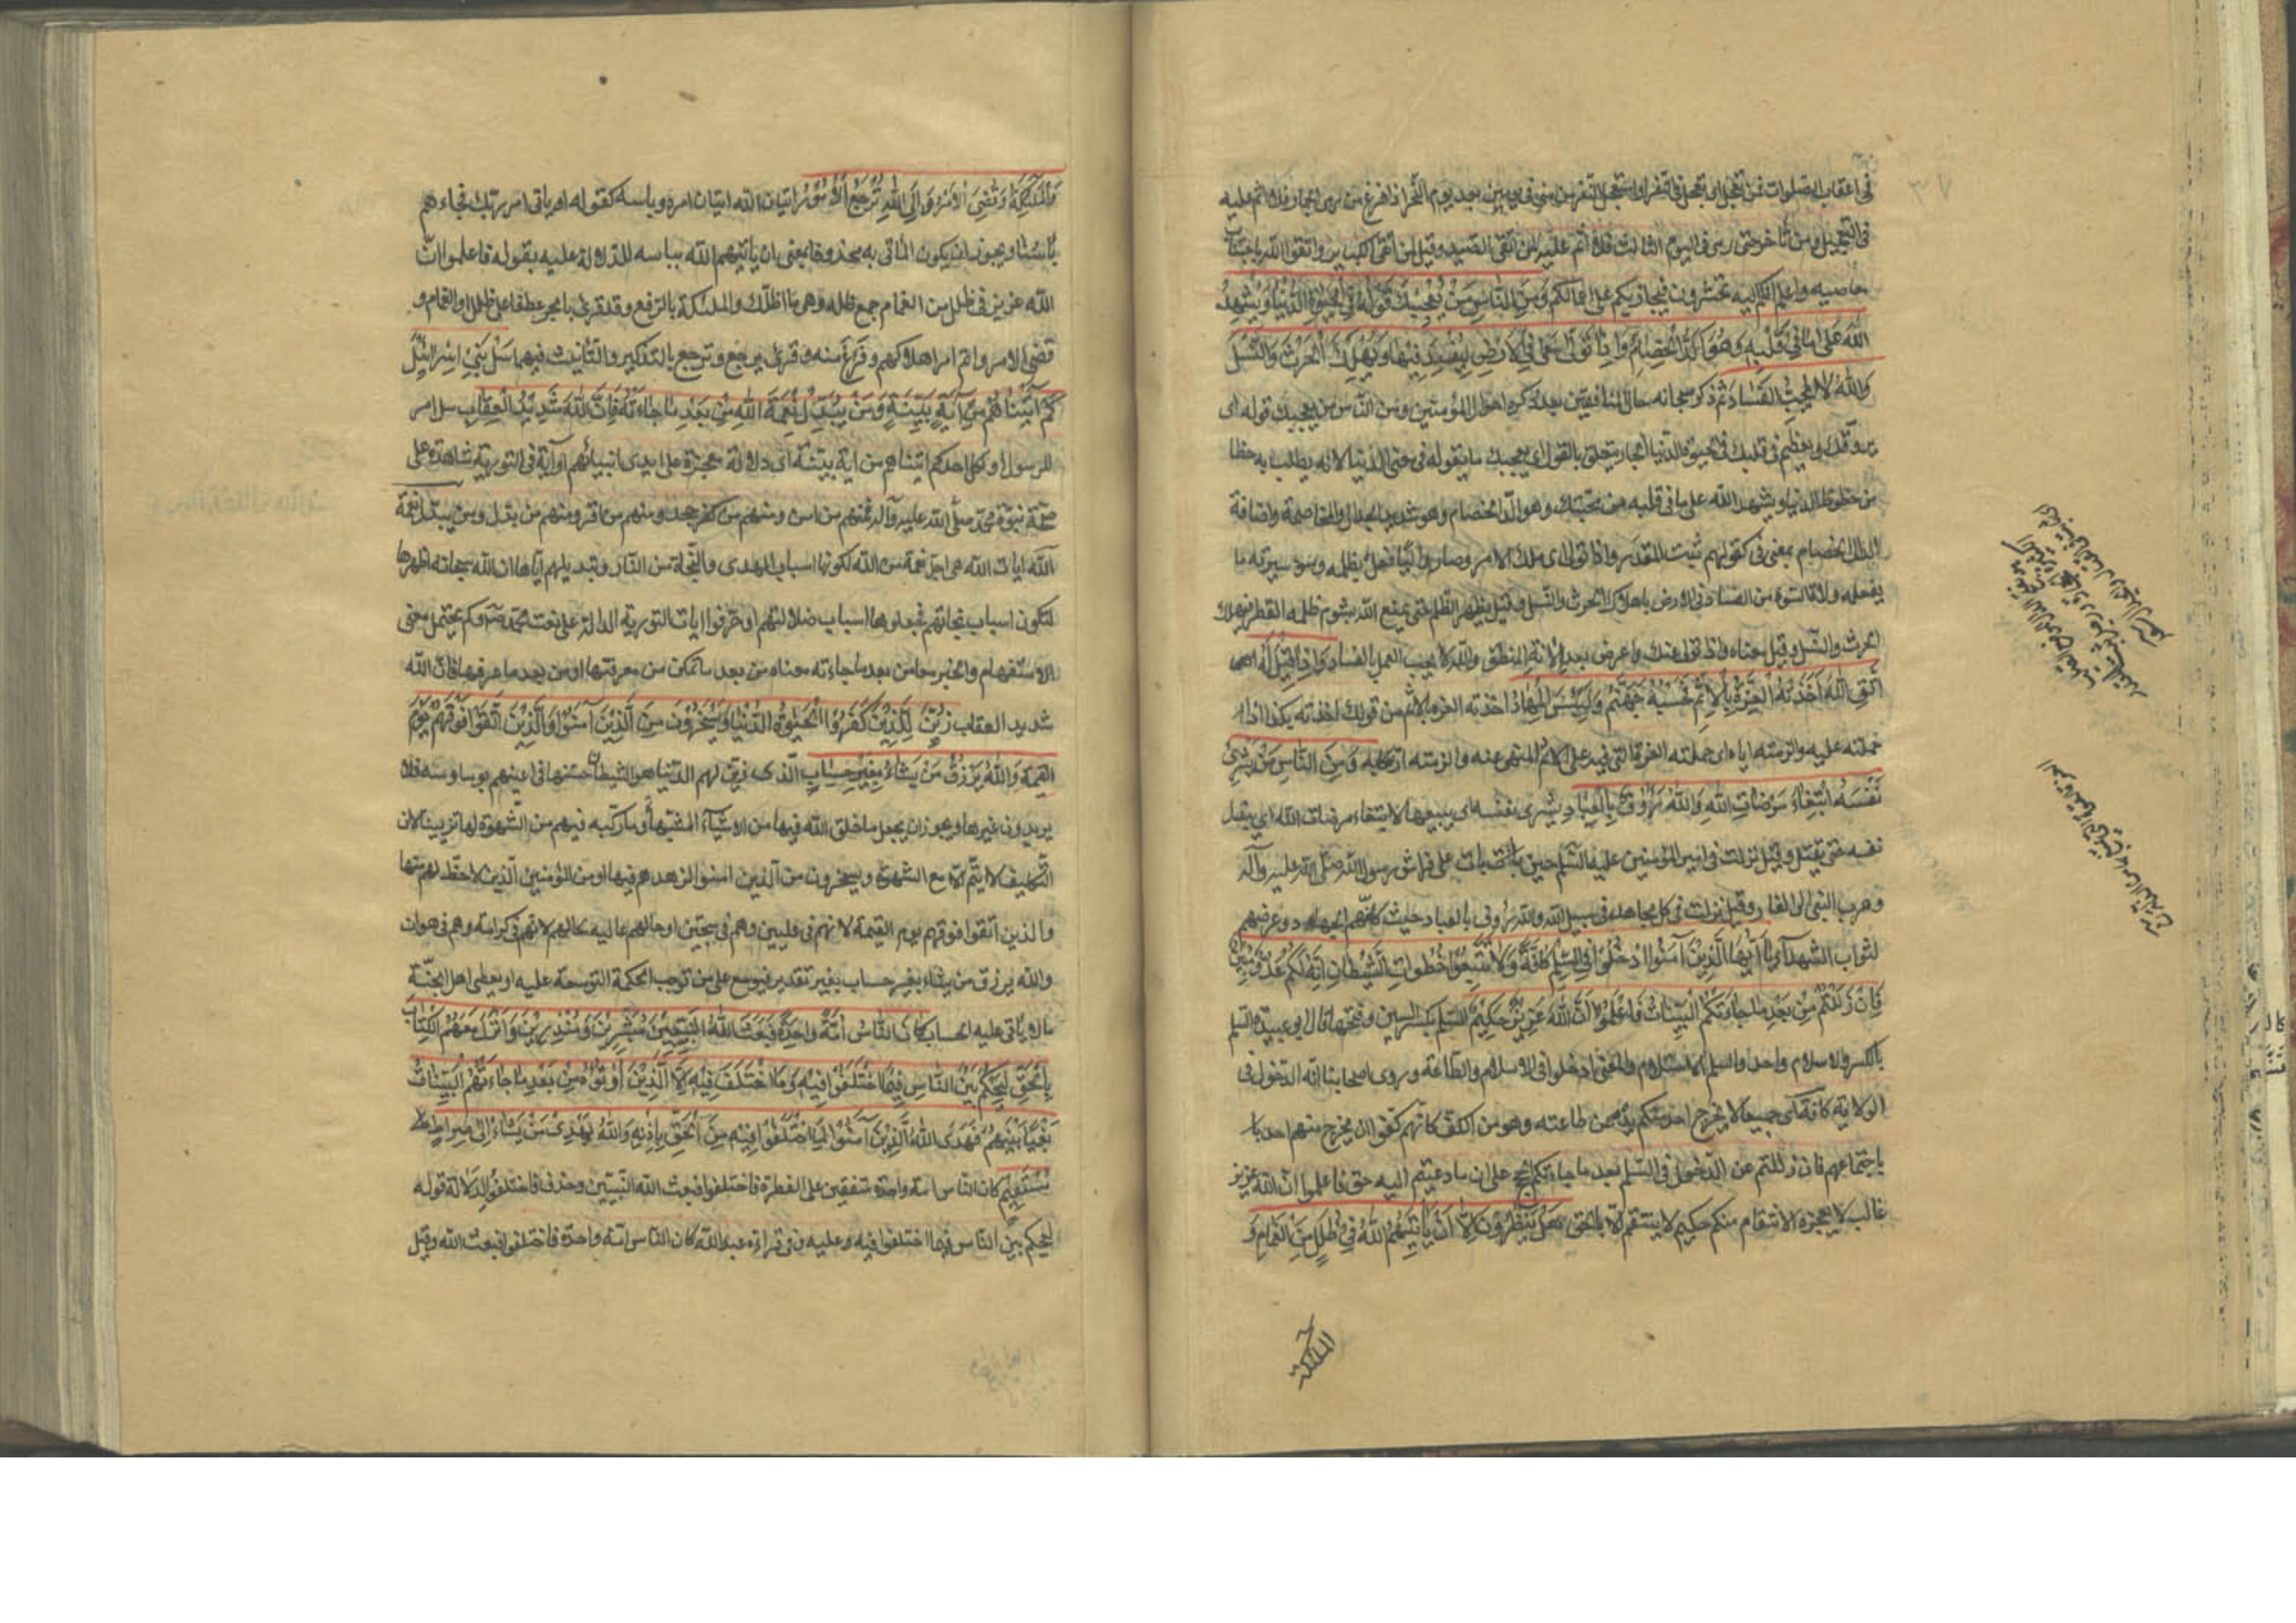 فى اعقاب الصلوات فمن تعجل اى تعجل فى النفر او استعجل النفر من منى فى يومين بعد يوم النحر اذا فرغ من رمى الجمار فلا اثم عليه
فى التعجيل ومن تأخر حتى رمى فى اليوم الثالث فلا اثم عليه لمن اتقى الصيد وقيل لمن اتقى الكبائر واتقوا الله باجتناب
معاصيه واعلموا انكم اليه تحشرون فيجازيكم على اعمالكم وَمِنَ النَّاسِ مَنْ يُعْجِبُكَ قَوْلُهُ فِي الْحَيٰوةِ الدُّنْيَا وَيُشْهِدُ
اللهَ عَلى مَا فِي قَلْبِهِ وَهُوَ اَلَدُّ الْخِصَامِ وَاِذَا تَوَلّى سَعى فِي الْاَرْضِ لِيُفْسِدَ فِيهَا وَيُهْلِكَ الْحَرْثَ وَالنَّسْلَ
وَاللهُ لا يُحِبُّ الْفَسَادَ ثم ذكر سبحانه حال المنافقين بعد ذكره احوال المؤمنين ومن الناس من يعجبك قوله اى
يروقك ويعظم فى قلبك فى الحيوة الدنيا الجار يتعلق بالقول اى يعجبك ما يقوله فى معنى الدنيا لانه يطلب به حظا
من حظوظ الدنيا ويشهد الله على ما فى قلبه من محبتك وهو الد الخصام وهو شديد الجدال والمخاصمة واضافة
الالد الى الخصام بمعنى فى كقولهم ثبت الغدر واذا تولى اى ملك الامر وصار واليا فعل بظلمه وسوء سيرته ما
يفعله ولاة السوء من الفساد فى الارض باهلاك الحرث والنسل وقيل يظهر الظلم حتى يمنع الله بشوم ظلمه القطر فيهلك
الحرث والنسل وقيل معناه واذا تولى عنك واعرض بعد الانة المنطق والله لا يحب العمل بالفساد وَاِذَا قِيلَ لَهُ
اتَّقِ اللهَ اَخَذَتْهُ الْعِزَّةُ بِالْاِثْمِ فَحَسْبُهُ جَهَنَّمُ وَلَبِئْسَ الْمِهَادُ اخذته العزة بالاثم من قولك اخذته بكذا اذا
حملته عليه والزمته اياه اى حملته العزة التى فيه على الاثم المنهى عنه والزمته ارتكابه وَمِنَ النَّاسِ مَنْ يَشْرِي
نَفْسَهُ ابْتِغَاءَ مَرْضَاتِ اللهِ وَاللهُ رَؤُفٌ بِالْعِبَادِ يشرى نفسه اى يبيعها لابتغاء مرضات الله اى يبذل
نفسه حتى يقتل وقيل نزلت فى امير المؤمنين عليه السلم حين بات على فراش رسول الله صلى الله عليه وآله
وهرب النبى الى الغار وقيل نزلت فى كل مجاهد فى سبيل الله والله رؤف بالعباد حيث كلفهم الجهاد وعرضهم
لثواب الشهداء يَا اَيُّهَا الَّذِينَ آمَنُوا ادْخُلُوا فِي السِّلْمِ كَافَّةً وَلا تَتَّبِعُوا خُطُوَاتِ الشَّيْطَانِ اِنَّهُ لَكُمْ عَدُوٌّ مُبِينٌ
فَاِنْ زَلَلْتُمْ مِنْ بَعْدِ مَا جَاءَتْكُمُ الْبَيِّنَاتُ فَاعْلَمُوا اَنَّ اللهَ عَزِيزٌ حَكِيمٌ السلم بكسر السين وفتحها قال ابو عبيدة السلم
بالكسر والاسلام واحد والسلم الاستسلام والمعنى ادخلوا فى الاسلام والطاعة وروى اصحابنا انه الدخول فى
الولاية كافة اى جميعا لا يخرج احد منكم يده عن طاعته وهو من الكف كانهم كفوا ان يخرج منهم احد با
باجتماعهم فان زللتم عن الدخول فى السلم بعد ما جاءتكم الحجج على ان ما دعيتم اليه حق فاعلموا ان الله عزيز
غالب لا يعجزه الانتقام منكم حكيم لا ينتقم الا بالحق هَلْ يَنْظُرُونَ اِلَّا اَنْ يَأْتِيَهُمُ اللهُ فِي ظُلَلٍ مِنَ الْغَمَامِ وَ
الملائكة
وَالْمَلٰئِكَةُ وَقُضِيَ الْاَمْرُ وَاِلَى اللهِ تُرْجَعُ الْاُمُورُ اتيان الله اتيان امره وباسه كقوله او ياتى امر ربك فجاءهم
بأسنا ويجوز ان يكون الماتى به محذوفا بمعنى ان ياتيهم الله بباسه للدلالة عليه بقوله فاعلموا ان
الله عزيز فى ظلل من الغمام جمع ظلة وهى ما اظلك والملئكة بالرفع وقد قرئ بالجر عطفا على ظلل او الغمام و
قضى الامر واتم امر اهلاكهم وفرغ منه وقرئ يرجع وترجع بالتذكير والتأنيث فيهما سَلْ بَنِي اِسْرَائِيلَ
كَمْ آتَيْنَاهُمْ مِنْ آيَةٍ بَيِّنَةٍ وَمَنْ يُبَدِّلْ نِعْمَةَ اللهِ مِنْ بَعْدِ مَا جَاءَتْهُ فَاِنَّ اللهَ شَدِيدُ الْعِقَابِ سل امر
للرسول او لكل احد كم اتيناهم من اية بينة اى دلالة معجزة على ايدى انبيائهم او آية فى التورية شاهدة على
صحة نبوة محمد صلى الله عليه وآله فمنهم من امن ومنهم من كفر وجحد ومنهم من اقر ومنهم من بدل ومن يبدل نعمة
الله ايات الله هى اجل نعمة من الله لكونها اسباب الهدى والنجاة من النار وتبديلهم اياها ان الله سبحانه اظهرها
لتكون اسباب نجاتهم فجعلوها اسباب ضلالتهم او حرفوا ايات التورية الدالة على نعت محمد ص وكم يحتمل معنى
الاستفهام والخبر معا من بعد ما جاءته معناه من بعد ما تمكن من معرفتها او من بعد ما عرفها فان الله
شديد العقاب زُيِّنَ لِلَّذِينَ كَفَرُوا الْحَيٰوةُ الدُّنْيَا وَيَسْخَرُونَ مِنَ الَّذِينَ آمَنُوا وَالَّذِينَ اتَّقَوْا فَوْقَهُمْ يَوْمَ
القيمة وَاللهُ يَرْزُقُ مَنْ يَشَاءُ بِغَيْرِ حِسَابٍ الذى زين لهم الدنيا هو الشيطان حسنها فى اعينهم بوساوسه فلا
يريدون غيرها ويجوز ان يجعل ما خلق الله فيها من الاشياء المشتهاة وما ركبه فيهم من الشهوة لها تزيينا لان
التكليف لا يتم الا مع الشهوة ويسخرون من الذين امنوا لزهدهم فيها او من المؤمنين الذين لا حظ لهم منها
والذين اتقوا فوقهم يوم القيمة لانهم فى عليين وهم فى سجين او حالهم عالية لحالهم لانهم فى كرامة وهم فى هوان
والله يرزق من يشاء بغير حساب بغير تقدير فيوسع على من توجب الحكمة التوسعة عليه او يعطى اهل الجنة
ما لا ياتى عليه الحساب كَانَ النَّاسُ اُمَّةً وَاحِدَةً فَبَعَثَ اللهُ النَّبِيِّينَ مُبَشِّرِينَ وَمُنْذِرِينَ وَاَنْزَلَ مَعَهُمُ الْكِتَابَ
بِالْحَقِّ لِيَحْكُمَ بَيْنَ النَّاسِ فِيمَا اخْتَلَفُوا فِيهِ وَمَا اخْتَلَفَ فِيهِ اِلَّا الَّذِينَ اُوتُوهُ مِنْ بَعْدِ مَا جَاءَتْهُمُ الْبَيِّنَاتُ
بَغْيًا بَيْنَهُمْ فَهَدَى اللهُ الَّذِينَ آمَنُوا لِمَا اخْتَلَفُوا فِيهِ مِنَ الْحَقِّ بِاِذْنِهِ وَاللهُ يَهْدِي مَنْ يَشَاءُ اِلى صِرَاطٍ
مُسْتَقِيمٍ كان الناس امة واحدة متفقين على الفطرة فاختلفوا فبعث الله النبيين وحذف فاختلفوا لدلالة قوله
ليحكم بين الناس فيما اختلفوا فيه وعليه وفى قراءة عبد الله كان الناس امة واحدة فاختلفوا فبعث الله وقيل